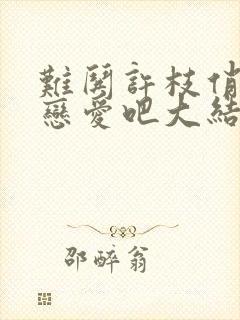 難関許枝俏
戀愛吧大結
邵醉翁